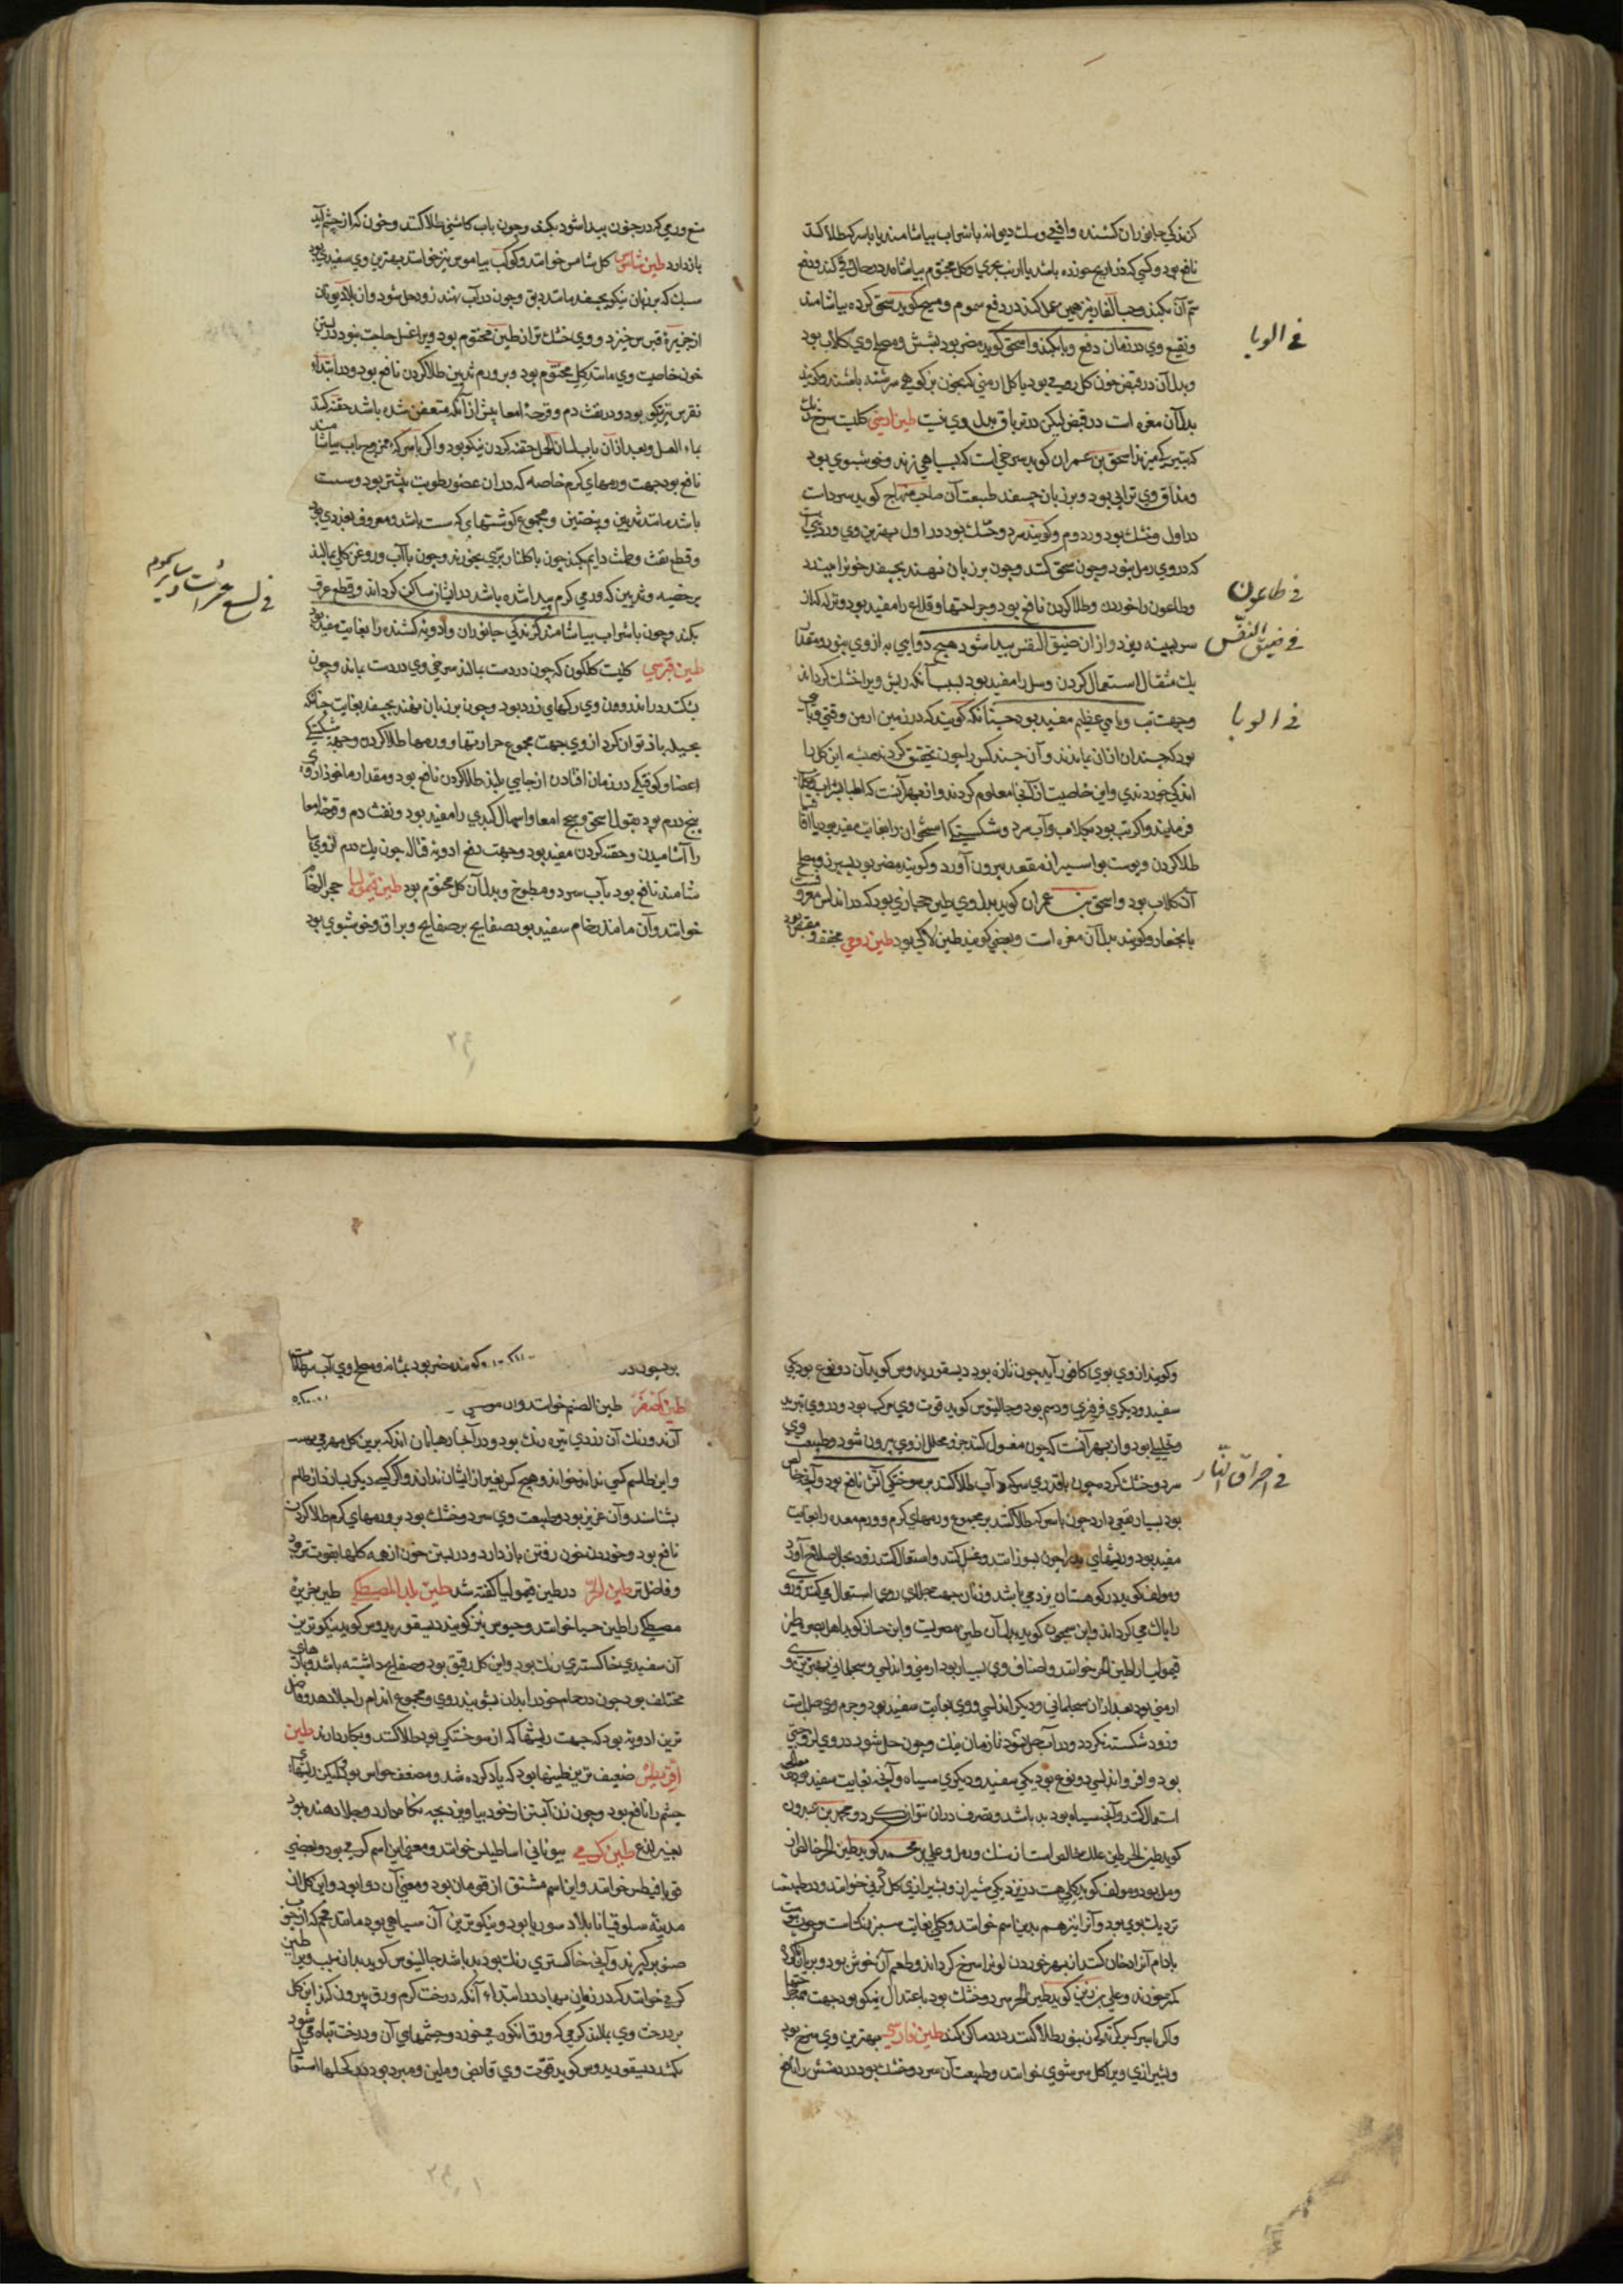 کزندکی جانوران کشنده وافعی وسك دیوانه باشراب بیاشامند یا باسرکه طلا کنند
نافع بود وکسی که ذراریح خورده باشد یا ارنب بحری وکل مختوم بیاشامد درحال قی کند ودفع
سم آن بکند وحب الغار نیز همین عمل کند در دفع سموم ومسیح کوید سحق کرده بیاشامند
ونقیع وی در زمان دفع وبا بکند واسحق کوید مضر بود بشش ومصلح وی کلاب بود
فی الوبا
وبدل آن در قبض خون کل رومی بود یا کل ارمنی که بخون بز کوهی سرشته باشند وکویند
بدل آن مغره است در قبض لیکن در تریاق بدل وی نیست طین ارمنی کلیست سرخ رنك
که بتیرکی میزند اسحق بن عمران کوید سرخی است که بسیاهی زند وخوشبوی بود
ومذاق وی ترابی بود وبر زبان چسفد طبیعت آن صاحب منهاج کوید سردست
در اول وخشك بود در دوم وکویند سرد وخشك بود در اول بهترین وی وردی است
که در وی رمل نبود وچون سحق کنند وچون بر زبان نهند بچسفد خون را ببندد
وطاعون را خوردن وطلا کردن نافع بود وجراحتها وقلاع را مفید بود ونزله که از
فی طاعون
سر بسینه ریزد واز آن ضیق النفس پیدا شود هیچ دوایی به از وی نبود ومقدار
فی ضیق النفس
یك مثقال استعمال کردن وسل را مفید بود بسبب آنکه ریش ویرا خشك کرداند
وجهت تب وبایی عظیم مفید بود چنانکه کویند که در زمین ارمن وقتی وبایی
فی الوبا
بود که چندان انسان نماندند وآن چند کس را چون تحقیق کردند همیشه این کل را
اندکی خوردندی واین خاصیت از آنجا معلوم کردند واز بهر آنست که اطبا بشراب
فرمایند واکر تب بود بکلاب وآب سرد وشکستکی استخوان را بغایت مفید بود با اقاقیا
طلا کردن وپوست بواسیر از مقعد بیرون آورد وکویند مضر بود بسپرز ومصلح
آن کلاب بود واسحق بن عمران کوید بدل وی طین حجازی بود که در اندلس معروفست
بانجبار وکویند بدل آن مغره است وبعضی کویند طین لاکی بود طین رومی مجفف ومقبض بود
منع ورمی که در جفون پیدا شود بکند وچون باب کاسنی طلا کنند وخون که از چشم آید
بازدارد طین شاموس کل شامس خوانند وکوکب ساموس نیز خوانند بهترین وی سفیدی بود
سبك که بر زبان نیکو بچسفد مانند دبق وچون در آب نهند زود حل شود واز بلاد یونان
از جزیرهٔ قبرس خیزد ووی خشك تر از طین مختوم بود ویرا غسل حاجت نبود در بستن
خون خاصیت وی مانند کل مختوم بود وبر ورم ثدیین طلا کردن نافع بود ودر ابتداء
نقرس نیز نیکو بود ودر نفث دم وقرحهٔ امعا پیش از آنکه متعفن شده باشد حقنه کنند
بماء العسل وبعد از آن باب لسان الحمل حقنه کردن نیکو بود واکر باسرکه ممزوج باب بیاشامند
نافع بود جهت ورمهای کرم خاصه که در آن عضو رطوبت بیشتر بود وسست
باشد مانند ثدیین وبیضتین ومجموع کوشتهای که سست باشد ومعروف بغددی بود
وقطع نفث وطمث دایم بکند چون باکلنار بری بخورند وچون باآب وروغن کل بمالند
بر خصیه وثدیین که ورمی کرم پیدا شده باشد در ایشان ساکن کرداند وقطع عرق
بکند وچون باشراب بیاشامند کزندکی جانوران وادویهٔ کشنده را بغایت مفید بود
فی لسع حشرات وسایر سموم
طین قبرسی کلیست کلکون که چون در دست بمالند سرخی وی در دست بماند وچون
بشکنند در اندرون وی رکهای زرد بود وچون بر زبان نهند بچسفد بغایت چنانکه
بحیله باز توان کرد از وی جهت مجموع حرارتها وورمها طلا کردن وجهت شکستکی
اعضا وکوفتکی در زمان افتادن از جایی بلند طلا کردن نافع بود ومقدار ماخوذ از وی
پنج درم بود بقول اسحق وسحج امعا واسهال کبدی را مفید بود ونفث دم وقرحه امعا
را آشامیدن وحقنه کردن مفید بود وجهت دفع ادویهٔ قتاله چون یك درم از وی بیا
شامند نافع بود باب سرد ومطبوخ وبدل آن کل مختوم بود طین قیمولیا حجر الرخام
خوانند وآن مانند رخام سفید بود صفایح بر صفایح وبراق وخوشبوی بود
وکویند از وی بوی کافور آید چون تازه بود دیسقوریدوس کوید آن دو نوع بود یکی
سفید ودیکری فرفیری ودسم بود وجالینوس کوید قوت وی مرکب بود ودر وی تبرید
وتحلیل بود واز بهر آنست که چون مغسول کنند جزو محلل از وی بیرون شود وطبیعت وی
سرد وخشك کرده چون باقدری سرکه وآب طلا کنند بر سوختکی آتش نافع بود وآنچه خالص
فی احراق النار
بود بسیار نفعی دارد چون باسرکه طلا کنند بر مجموع ورمهای کرم وورم معده را بغایت
مفید بود وریشهای بد را چون بسوزانند وغسل کنند واستعمال کنند زود بحال صلاح آورد
ومولف کوید در کوهستان یزد می باشد وزنان جهت جلای روی استعمال می کنند وروی
را پاك می کرداند وابن سمجون کوید بدل آن طین مصریست وابن حسان کوید اهل بصره طین
قیمولیا را طین الحر خوانند واصناف وی بسیار بود ارمنی واندلسی وسجلماسی بهترین وی
ارمنی بود بعد از آن سجلماسی ودیکر اندلسی ووی بغایت سفید بود وجرم وی صلبست
وزود شکسته نکردد ودر آب حل نشود تا زمان نیك وچون حل شود در وی لزوجتی
بود وافر واندلسی دو نوع بود یکی سفید ودیکری سیاه وآنچه بغایت سفید بود
استعمال کنند وآنچه سیاه بود بد باشد وتصرف در آن نتوان کرد ومحمد بن عبدون
کوید طین الحر طین علك خالص است از سنك ورمل وعلی بن محمد کوید طین الحر خالص از
رمل بود ومولف کوید کلی هست در نزدیکی شیراز وبشیرازی کل کرنی خوانند ودر طبیعت
نزدیك بوی بود وآنرا نیز هم بدین اسم خوانند وکلی بغایت سبز رنك است وچون پوست
بادام آنرا دخان کنند از بهر خوردن لونرا سرخ کرداند وطعم آن خوش بود وبریان کرده
کمتر خورند وعلی بن زین کوید طین الحر سرد وخشك بود باعتدال نیکو بود جهت
واکر باسرکه بر کزندکی زنبور طلا کنند درد ساکن کند طین فارسی بهترین وی سرخ بود
وبشیرازی ویرا کل سرشوی خوانند وطبیعت آن سرد وخشك بود درد شش را نافع
بود چون در وکویند مضر بود بمثانه ومصلح وی آب
طین اصفر طین الصنم خوانند واز موضعی
آرند ورنك آن زردی تیره رنك بود ودر آنجا رهبانان اند که برین کل مهر می
واین طلسم کسی نداند خواند وهیچ کس بغیر از ایشان نداند واکر کسی دیکر بسازد از طلسم
بشناسند وآن عزیز بود وطبیعت وی سرد وخشك بود بر ورمهای کرم طلا کردن
نافع بود وخوردن خون رفتن باز دارد ودر بستن خون از همه کلها بقوت تر بود
وفاضل تر طین الحر در طین قیمولیا کفته شد طین بلد المصطکی طین جزیرهٔ
مصطکی را طین حیا خوانند وجیوس نیز کویند دیسقوریدوس کوید نیکو ترین
آن سفیدی خاکستری رنك بود واین کل رقیق بود وصفایح داشته باشد وپارهای
مختلف بود چون در حمام خود را بدان بشویند روی ومجموع اندام را جلا دهد وفاضل
ترین ادویه بود که جهت ریشها که از سوختکی بود طلا کنند وبکار دارند طین
اقریطش ضعیف ترین طینها بود که یاد کرده شد ومضعف حواس بود ولیکن ریشهای
چشم را نافع بود وچون زن آبستن از خود بیاویزد بچه نکاه دارد وجلا دهنده بود
بغیر لذع طین کرمی بیونانی اساطیلس خوانند ومعنی این اسم کرمی بود وبعضی
قوبا فیطس خوانند واین اسم مشتق از قومان بود ومعنی آن دوا بود واین کل از
مدینهٔ سلوقیا نا بلاد سوریا بود ونیکو ترین آن سیاهی بود مانند فحم که از چوب
صنوبر کیرند وآنچه خاکستری رنك بود بد باشد جالینوس کوید بدان سبب ویرا طین
کرمی خوانند که در زمان بهار در ابتداء آنکه درخت کرم ورق بیرون کند این کل
بر درخت وی بمالند کرمی که ورق انکور می خورد وچشمهای آن ودرخت تباه می شود
بکشد دیسقوریدوس کوید قوت وی قابض وملین ومبرد بود در کحلها استعمال